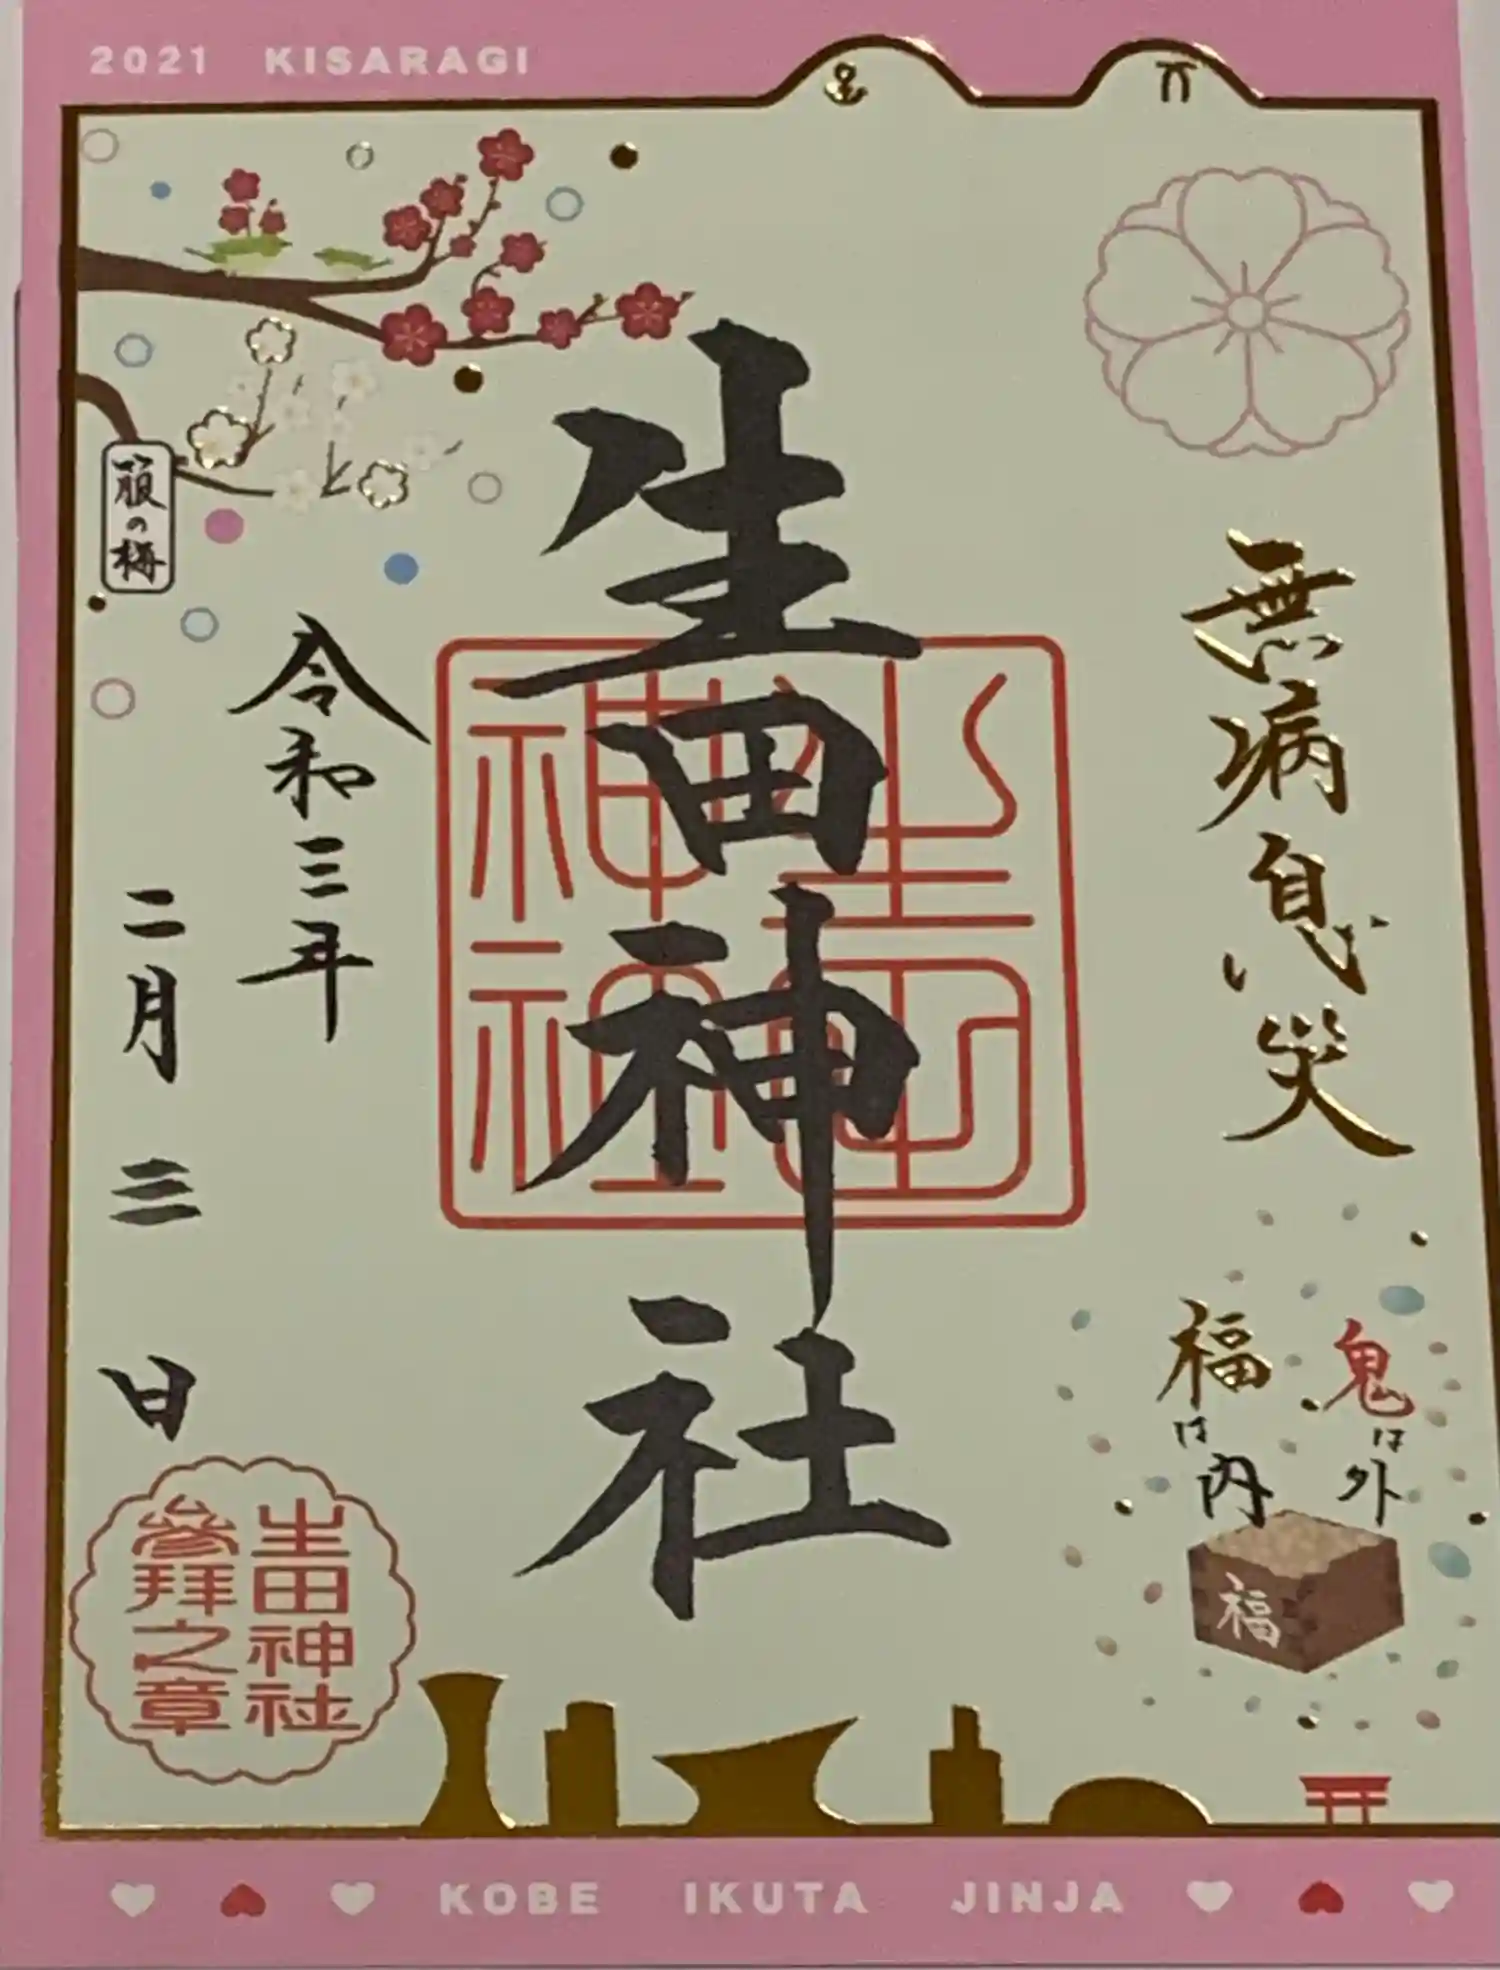 2021 KISARAGI
無病息災
鬼は外
福は内
福
生田神社
生田神社
箙の梅
令和三年
二月三日
生田神社
參拜之章
KOBE IKUTA JINJA